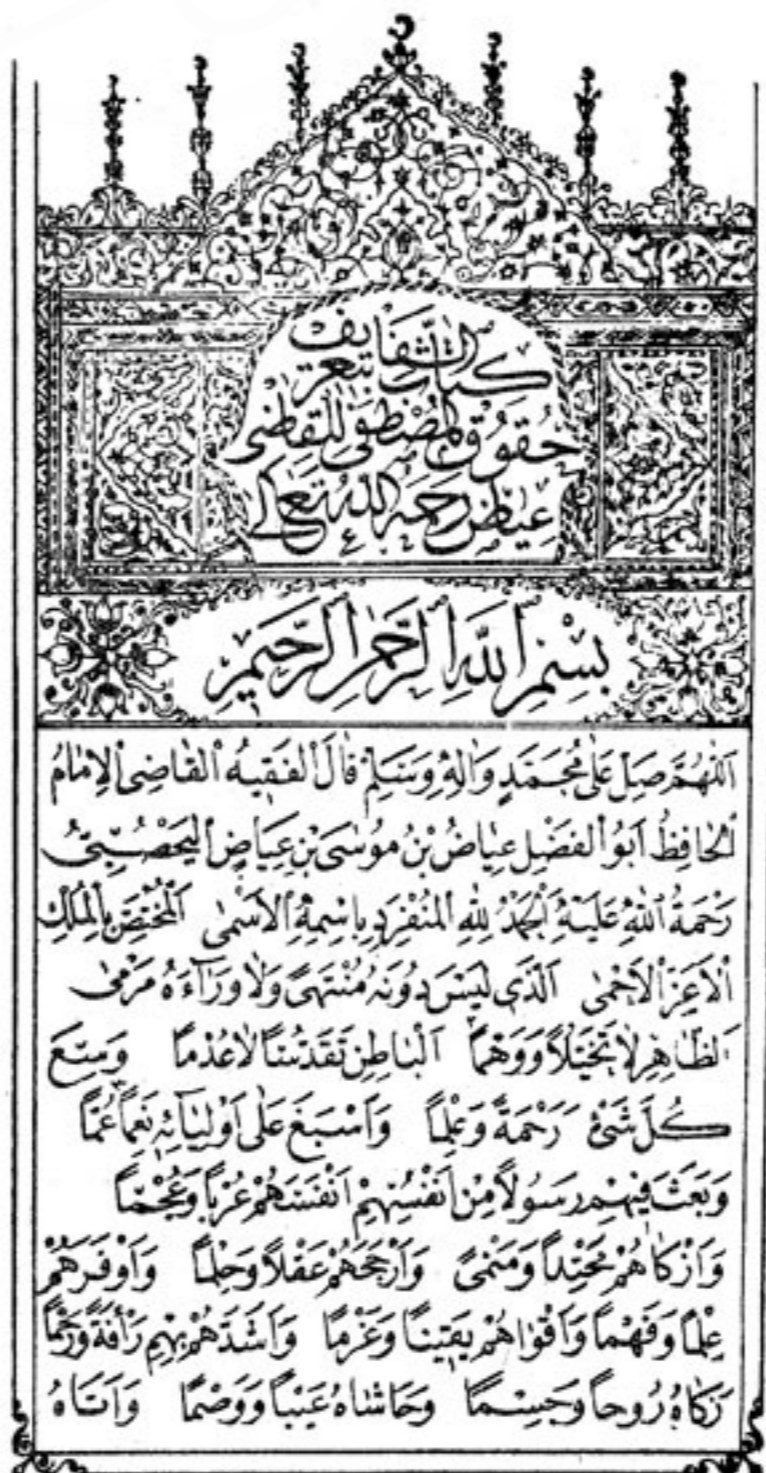 كتاب الشفا بتعريف
حقوق المصطفى للقاضى
عياض رحمه الله تعالى
بِسْمِ اللهِ الرَّحْمٰنِ الرَّحِيمِ
اَللّٰهُمَّ صَلِّ عَلٰى مُحَمَّدٍ وَاٰلِهِ وَسَلِّمْ قَالَ الْفَقِيهُ الْقَاضِى الْاِمَامُ
الْحَافِظُ اَبُو الْفَضْلِ عِيَاضُ بْنُ مُوسَى بْنِ عِيَاضٍ الْيَحْصُبِىُّ
رَحْمَةُ اللهِ عَلَيْهِ اَلْحَمْدُ لِلّٰهِ الْمُنْفَرِدِ بِاسْمِهِ الْاَسْمٰى الْمُخْتَصِّ بِالْمُلْكِ
الْاَعَزِّ الْاَحْمٰى اَلَّذِى لَيْسَ دُونَهُ مُنْتَهًى وَلَا وَرَآءَهُ مَرْمًى
اَلظَّاهِرِ لَا تَخَيُّلًا وَوَهْمًا اَلْبَاطِنِ تَقَدُّسًا لَا عُدْمًا وَسِعَ
كُلَّ شَىْءٍ رَحْمَةً وَعِلْمًا وَاَسْبَغَ عَلٰى اَوْلِيَآئِهِ نِعَمًا عُمًّا
وَبَعَثَ فِيهِمْ رَسُولًا مِنْ اَنْفُسِهِمْ اَنْفَسَهُمْ عُرْبًا وَعُجْمًا
وَاَزْكَاهُمْ مَحْتِدًا وَمَنْمًى وَاَرْجَحَهُمْ عَقْلًا وَحِلْمًا وَاَوْفَرَهُمْ
عِلْمًا وَفَهْمًا وَاَقْوَاهُمْ يَقِينًا وَعَزْمًا وَاَشَدَّهُمْ بِهِمْ رَأْفَةً وَرُحْمًا
زَكَّاهُ رُوحًا وَجِسْمًا وَحَاشَاهُ عَيْبًا وَوَصْمًا وَاٰتَاهُ